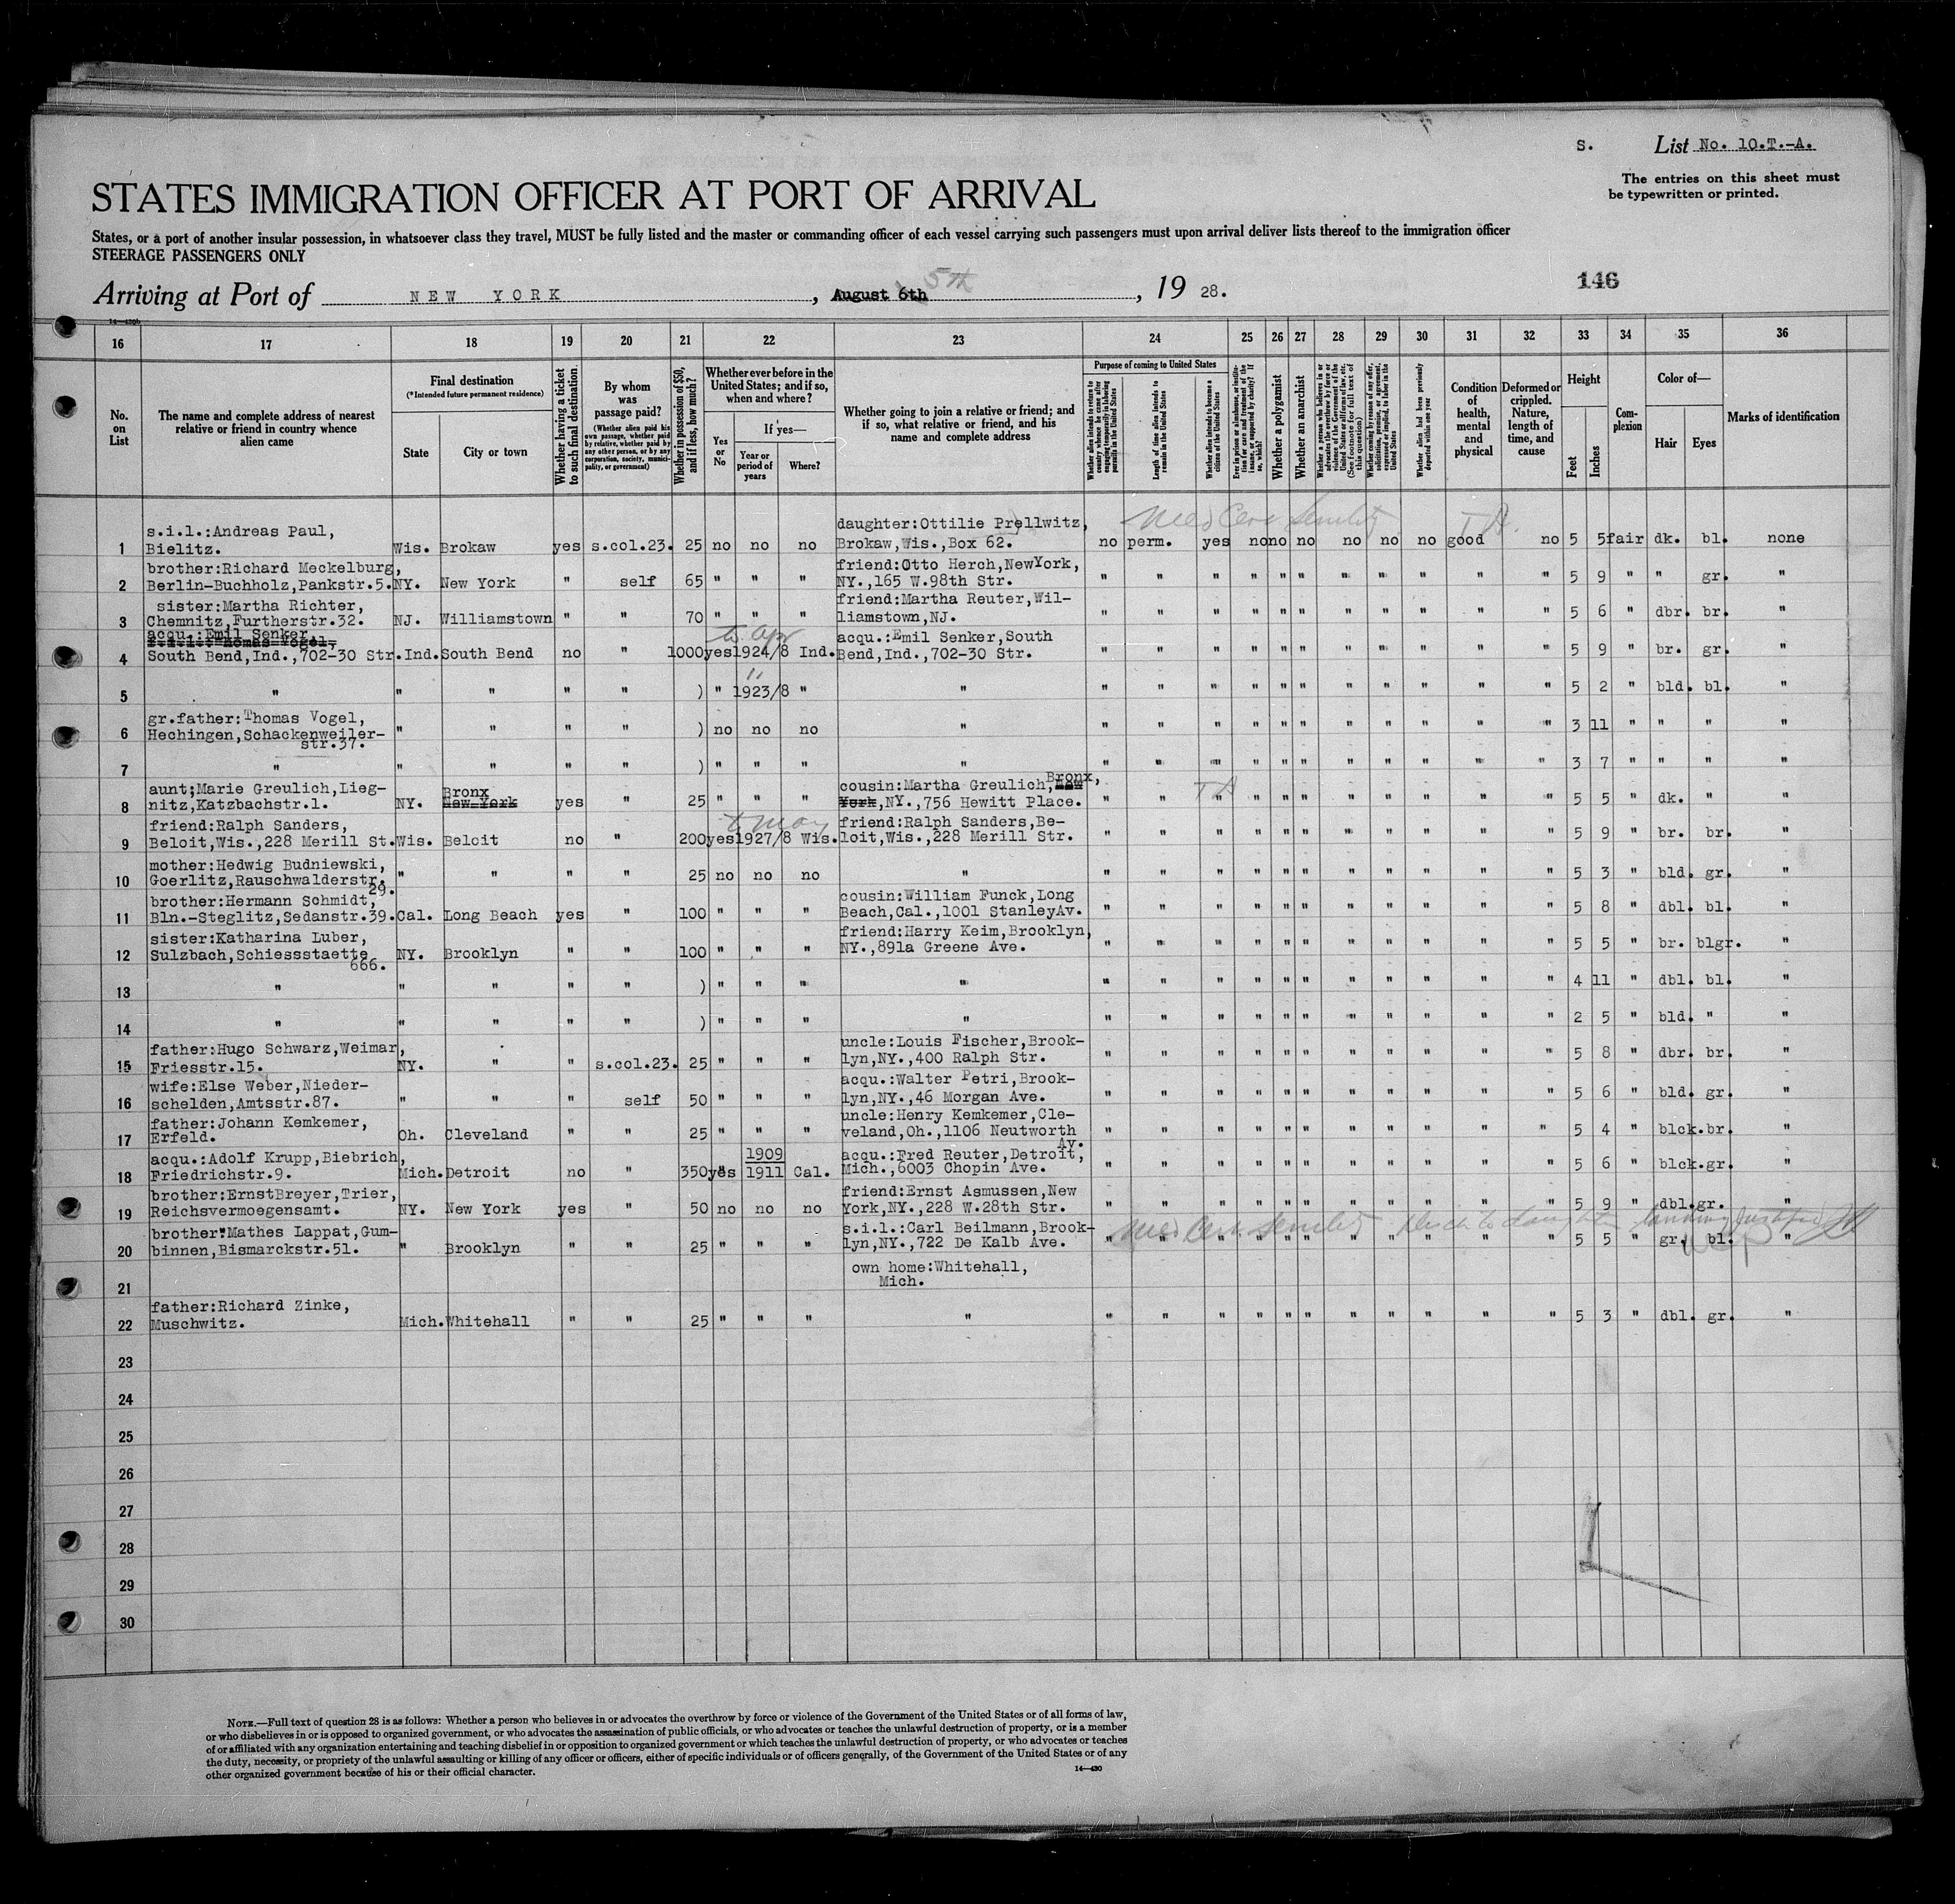 S. List No. 10.T.-A.
The entries on this sheet must
be typewritten or printed.
STATES IMMIGRATION OFFICER AT PORT OF ARRIVAL
States, or a port of another insular possession, in whatsoever class they travel, MUST be fully listed and the master or commanding officer of each vessel carrying such passengers must upon arrival deliver lists thereof to the immigration officer
STEERAGE PASSENGERS ONLY
5th
Arriving at Port of NEW YORK, August 6th, 19 28.
146
16 17 18 19 20 21 22 23 24 25 26 27 28 29 30 31 32 33 34 35 36
No. on List
The name and complete address of nearest relative or friend in country whence alien came
Final destination
(*Intended future permanent residence)
State
City or town
Whether having a ticket to such final destination
By whom was passage paid?
(Whether alien paid his own passage, whether paid by relative, whether paid by any other person, or by any corporation, society, municipality, or government)
Whether in possession of $50, and if less, how much?
Whether ever before in the United States; and if so, when and where?
Yes or No
If yes—
Year or period of years
Where?
Whether going to join a relative or friend; and if so, what relative or friend, and his name and complete address
Purpose of coming to United States
Length of time alien intends to remain in the United States
Whether alien intends to become a citizen of the United States
Whether a polygamist
Whether an anarchist
Whether alien had been previously deported within one year
Condition of health, mental and physical
Deformed or crippled. Nature, length of time, and cause
Height
Feet
Inches
Complexion
Color of—
Hair
Eyes
Marks of identification
s.i.l.:Andreas Paul, daughter:Ottilie Prellwitz,
1 Bielitz. Wis. Brokaw yes s.col.23. 25 no no no Brokaw,Wis.,Box 62. no perm. yes no no no no no no good no 5 5 fair dk. bl. none
brother:Richard Meckelburg, friend:Otto Herch,NewYork,
2 Berlin-Buchholz,Pankstr.5. NY. New York " self 65 " " " NY.,165 W.98th Str. " " " " " " " " " " " 5 9 " " gr. "
sister:Martha Richter, friend:Martha Reuter,Wil-
3 Chemnitz,Furtherstr.32. NJ. Williamstown " " 70 " " " liamstown,NJ. " " " " " " " " " " " 5 6 " dbr. br. "
acqu.:Emil Senker to apr acqu.:Emil Senker,South
4 South Bend,Ind.,702-30 Str. Ind. South Bend no " 1000 yes 1924/8 Ind. Bend,Ind.,702-30 Str. " " " " " " " " " " " 5 9 " br. gr. "
5 " " " " " ) " 1923/8 " " " " " " " " " " " " " 5 2 " bld. bl. "
gr.father:Thomas Vogel,
6 Hechingen,Schackenweiler- " " " " ) no no no " " " " " " " " " " " " 3 11 " " " "
str.37.
7 " " " " " ) " " " " " " " " " " " " " " " 3 7 " " " "
aunt;Marie Greulich,Lieg- Bronx cousin:Martha Greulich,New Bronx,
8 nitz,Katzbachstr.1. NY. New York yes " 25 " " " York,NY.,756 Hewitt Place. " " " " " " " " " " " 5 5 " dk. " "
friend:Ralph Sanders, to may friend:Ralph Sanders,Be-
9 Beloit,Wis.,228 Merill St. Wis. Beloit no " 200 yes 1927/8 Wis. loit,Wis.,228 Merill Str. " " " " " " " " " " " 5 9 " br. br. "
mother:Hedwig Budniewski,
10 Goerlitz,Rauschwalderstr. " " " " 25 no no no " " " " " " " " " " " " 5 3 " bld. gr. "
29.
brother:Hermann Schmidt, cousin:William Funck,Long
11 Bln.-Steglitz,Sedanstr.39. Cal. Long Beach yes " 100 " " " Beach,Cal.,1001 StanleyAv. " " " " " " " " " " " 5 8 " dbl. bl. "
sister:Katharina Luber, friend:Harry Keim,Brooklyn,
12 Sulzbach,Schiessstaette NY. Brooklyn " " 100 " " " NY.,891a Greene Ave. " " " " " " " " " " " 5 5 " br. blgr. "
666.
13 " " " " " ) " " " " " " " " " " " " " " " 4 11 " dbl. bl. "
14 " " " " " ) " " " " " " " " " " " " " " " 2 5 " bld. " "
father:Hugo Schwarz,Weimar, uncle:Louis Fischer,Brook-
15 Friesstr.15. NY. " " s.col.23. 25 " " " lyn,NY.,400 Ralph Str. " " " " " " " " " " " 5 8 " dbr. br. "
wife:Else Weber,Nieder- acqu.:Walter Petri,Brook-
16 schelden,Amtsstr.87. " " " self 50 " " " lyn,NY.,46 Morgan Ave. " " " " " " " " " " " 5 6 " bld. gr. "
father:Johann Kemkemer, uncle:Henry Kemkemer,Cle-
17 Erfeld. Oh. Cleveland " " 25 " " " veland,Oh.,1106 Neutworth " " " " " " " " " " " 5 4 " blck. br. "
Av.
acqu.:Adolf Krupp,Biebrich, 1909 acqu.:Fred Reuter,Detroit,
18 Friedrichstr.9. Mich. Detroit no " 350 yes 1911 Cal. Mich.,6003 Chopin Ave. " " " " " " " " " " " 5 6 " blck. gr. "
brother:ErnstBreyer,Trier, friend:Ernst Asmussen,New
19 Reichsvermoegensamt. NY. New York yes " 50 no no no York,NY.,228 W.28th Str. " " " " " " " " " " " 5 9 " dbl. gr. "
brother:Mathes Lappat,Gum- s.i.l.:Carl Beilmann,Brook-
20 binnen,Bismarckstr.51. " Brooklyn " " 25 " " " lyn,NY.,722 De Kalb Ave. " " " " " " " " " " " 5 5 " gr. bl. "
own home:Whitehall,
21 Mich.
father:Richard Zinke,
22 Muschwitz. Mich. Whitehall " " 25 " " " " " " " " " " " " " " " 5 3 " dbl. gr. "
23
24
25
26
27
28
29
30
NOTE.—Full text of question 28 is as follows: Whether a person who believes in or advocates the overthrow by force or violence of the Government of the United States or of all forms of law,
or who disbelieves in or is opposed to organized government, or who advocates the assassination of public officials, or who advocates or teaches the unlawful destruction of property, or is a member
of or affiliated with any organization entertaining and teaching disbelief in or opposition to organized government or which teaches the unlawful destruction of property, or who advocates or teaches
the duty, necessity, or propriety of the unlawful assaulting or killing of any officer or officers, either of specific individuals or of officers generally, of the Government of the United States or of any
other organized government because of his or their official character.
14—430